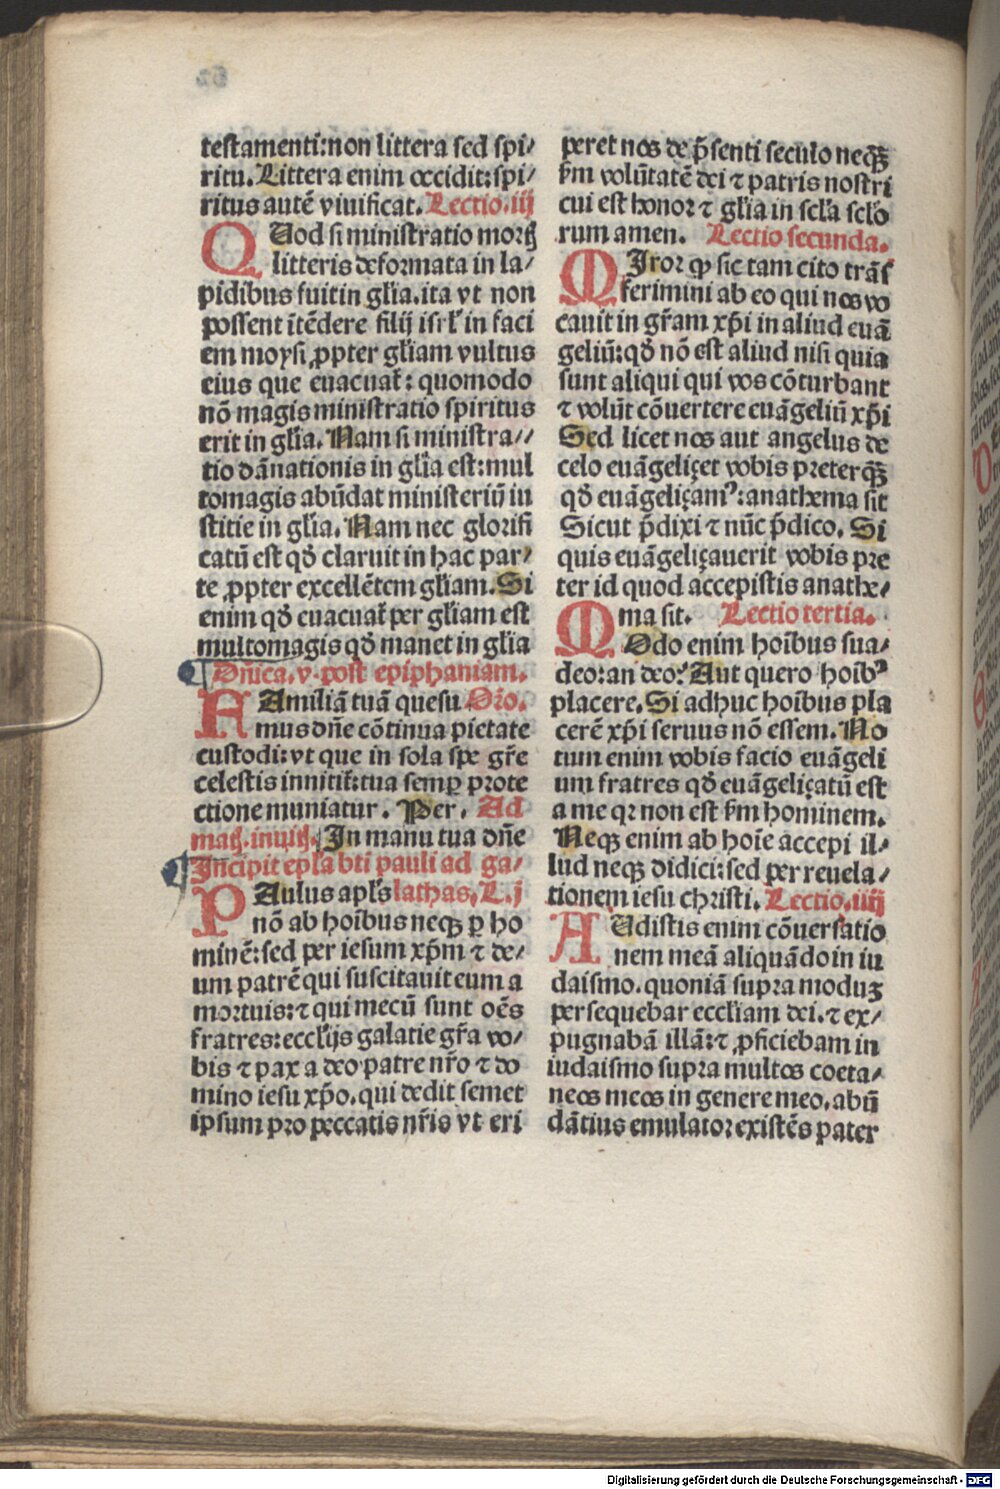 testamenti:non littera sed spi/
ritu. Littera enim occidit:spi/
ritus autē viuificat. Lectio.iij
QUod si ministratio mortꝭ
litteris deformata in la/
pidibus fuit in gl̄ia.ita vt non
possent ītēdere filij isrl̄ in faci
em moysi ꝓpter gl̄iam vultus
eius que euacuat̄: quomodo
nō magis ministratio spiritus
erit in gl̄ia. Nam si ministra//
tio dānationis in gl̄ia est:mul
tomagis abūdat ministeriū iu
stitie in gl̄ia. Nam nec glorifi
catū est qđ claruit in hac par/
te ꝓpter excellētem gl̄iam. Si
enim qđ euacuat̄ per gl̄iam est
multomagis qđ manet in gl̄ia
Dn̄ica.v.post epiphaniam.
FAmiliā tuā quesu Or̄o.
mus dn̄e cōtinua pietate
custodi:vt que in sola spe gr̄e
celestis innitit̄:tua semꝑ prote
ctione muniatur. Per. Ad
matꝭ.inuitꝭ. In manu tua dn̄e
Incipit epl̄a bt̄i pauli ad ga/
PAulus apl̄s lathas. L.j
nō ab hoībus neqꝫ ꝑ ho
minē:sed per iesum xp̄m ⁊ de/
um patrē qui suscitauit eum a
mortuis:⁊ qui mecū sunt oēs
fratres:eccl̄ijs galatie gr̄a vo/
bis ⁊ pax a deo patre nr̄o ⁊ do
mino iesu xp̄o.qui dedit semet
ipsum pro peccatis nr̄is vt eri
peret nos de p̄senti seculo neqꝫ̄
ẜm volūtatē dei ⁊ patris nostri
cui est honor ⁊ gl̄ia in scl̄a scl̄o
rum amen. Lectio secunda.
MIror ꝙ sic tam cito trāſ
ferimini ab eo qui nos vo
cauit in gr̄am xp̄i in aliud euā
geliū:qđ nō est aliud nisi quia
sunt aliqui qui vos cōturbant
⁊ volūt cōuertere euāgeliū xp̄i
Sed licet nos aut angelus de
celo euāgeliçet vobis preterqꝫ̄
qđ euāgeliçamꝰ:anathema sit
Sicut p̄dixi ⁊ nūc p̄dico. Si
quis euāgeliçauerit vobis pre
ter id quod accepistis anathe/
ma sit. Lectio tertia.
MOdo enim hoībus sua/
deo:an deo? Aut quero hoībꝰ
placere. Si adhuc hoībus pla
cerē xp̄i seruus nō essem. No
tum enim vobis facio euāgeli
um fratres qđ euāgeliçatū est
a me qꝛ non est ẜm hominem.
Neqꝫ enim ab hoīe accepi il/
lud neqꝫ didici:sed per reuela/
tionem iesu christi. Lectio.iiij
AUdistis enim cōuersatio
nem meā aliquādo in iu
daismo.quoniā supra moduꝫ
persequebar eccl̄iam dei.⁊ ex/
pugnabā illā:⁊ ꝓficiebam in
iudaismo supra multos coeta/
neos meos in genere meo.abū
dātius emulator existēs pater
Digitalisierung gefördert durch die Deutsche Forschungsgemeinschaft - DFG